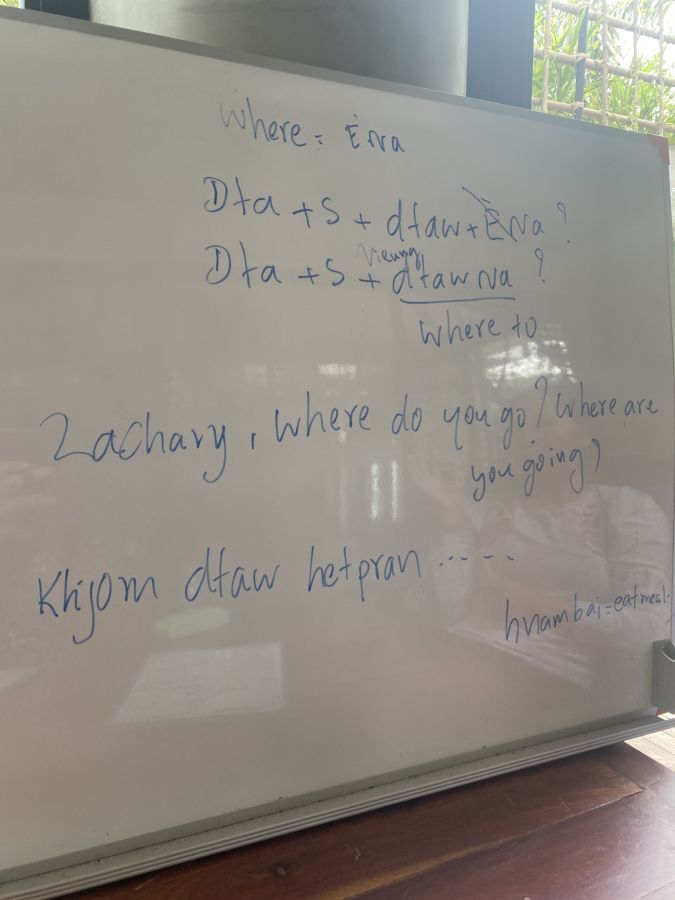 where = Ėna
Dta + S + dtaw + ĖNa ?
Dta + S + dtaw Na ?
where to
Zachary, where do you go? Where are
you going?
Khjom dtaw hetpran .....
hnambai = eat meal.